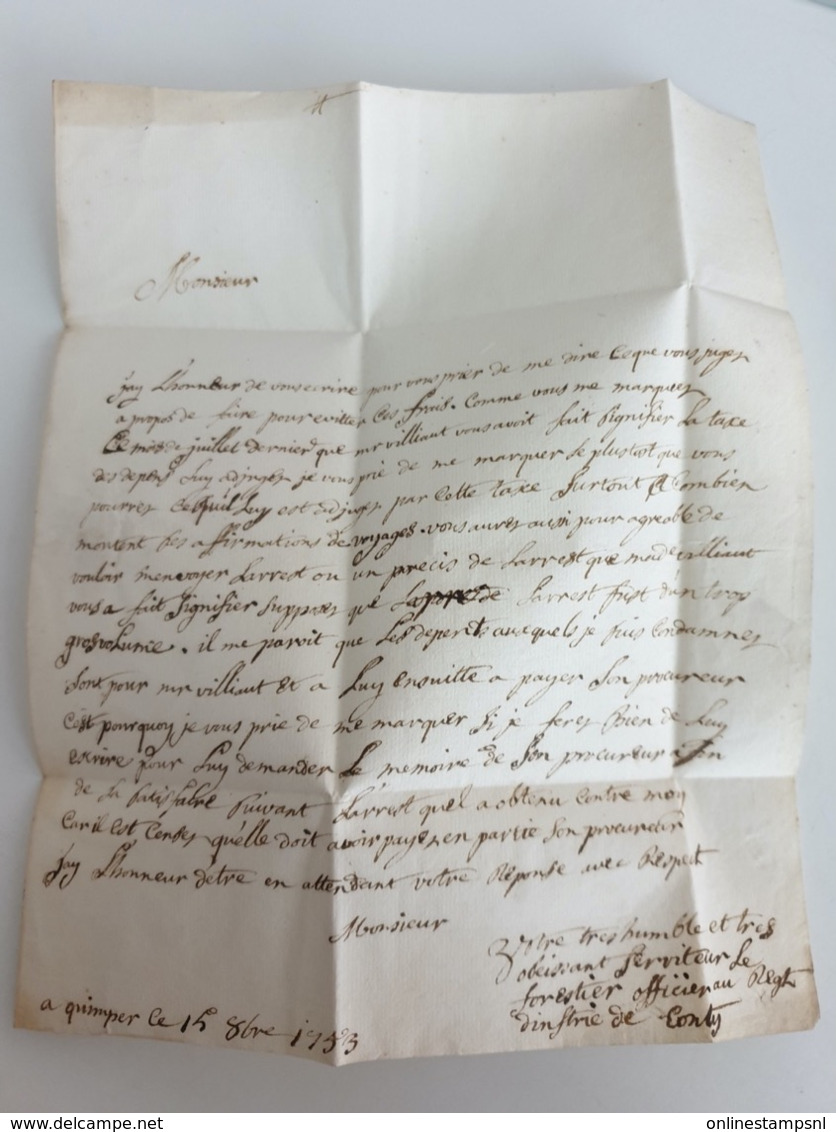 Monsieur
jay l'honneur de vous ecrire pour vous prier de me dire ce que vous juges
a propos de faire pour evitter ces frais. comme vous me marques
ce mois de juillet dernier que mr villiant vous avoit fait signifier la taxe
des depens luy adjuges je vous prie de me marquer le plustost que vous
pourres ce quil luy est adjuges par cette taxe surtout a combien
montent les affirmations de voyages. vous aures aussi pour agreable de
vouloir m'envoyer larrest ou un precis de larrest que made villiant
vous a fait signifier supposes que de larrest fust d'un trop
gros volume. il me paroit que les depents auxquels je suis condamnes
sont pour mr villiant et a luy ensuitte a payer son procureur
c'est pourquoy je vous prie de me marquer si je feres bien de luy
escrire pour luy demander le memoire de son procureur
de la suivant larrest quel a obtenu contre moy
car il est censes quelle doit avoir payes en partie son procureur
jay l'honneur d'etre en attendant votre reponse avec respect
Monsieur
Votre tres humble et tres
obeissant serviteur le
forestier officier au Regt
dinftrie de Conty
a quimper ce 15 8bre 1753
delcampe.net
onlinestampsnl